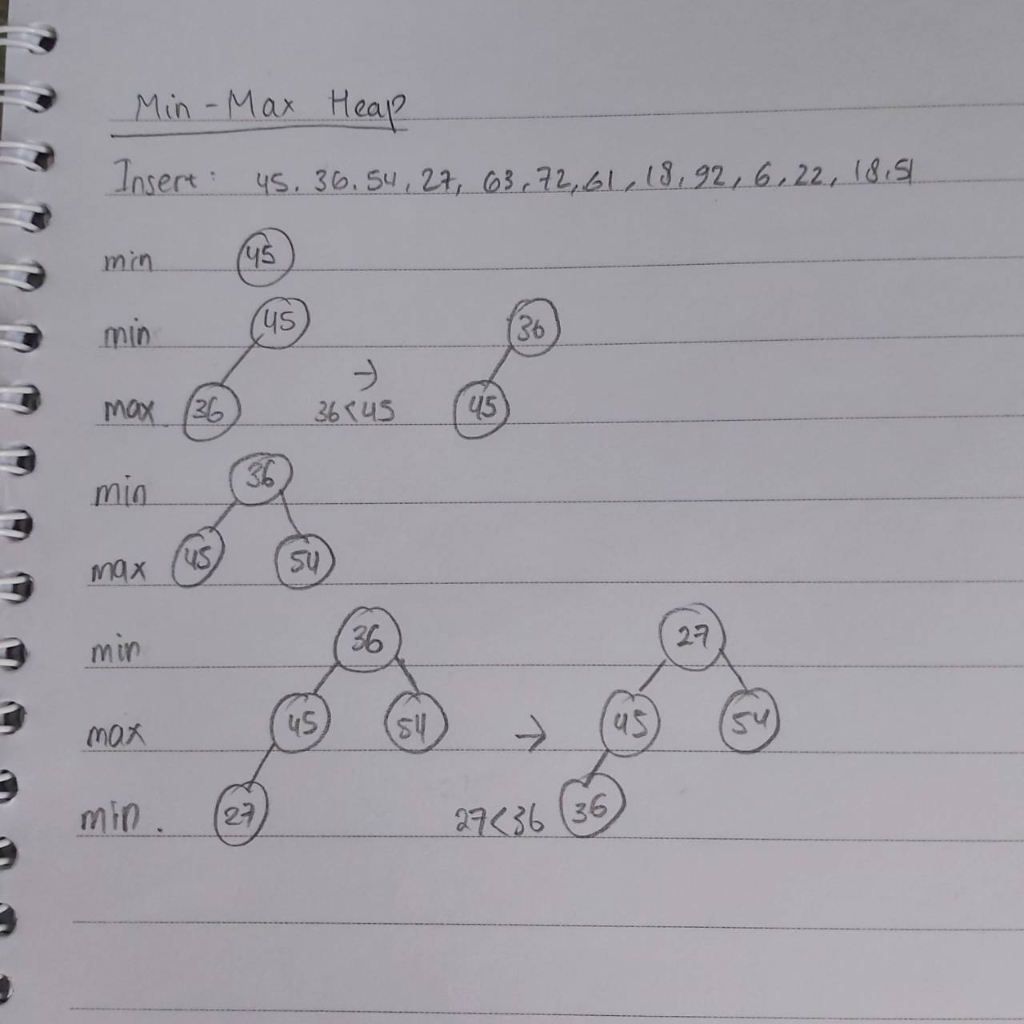 Min - Max Heap
Insert: 45, 36, 54, 27, 63, 72, 61, 18, 92, 6, 22, 18, 51
min 45
min 45 36
→
max 36 36<45 45
min 36
max 45 54
min 36 27
max 45 54 → 45 54
min. 27 27<36 36